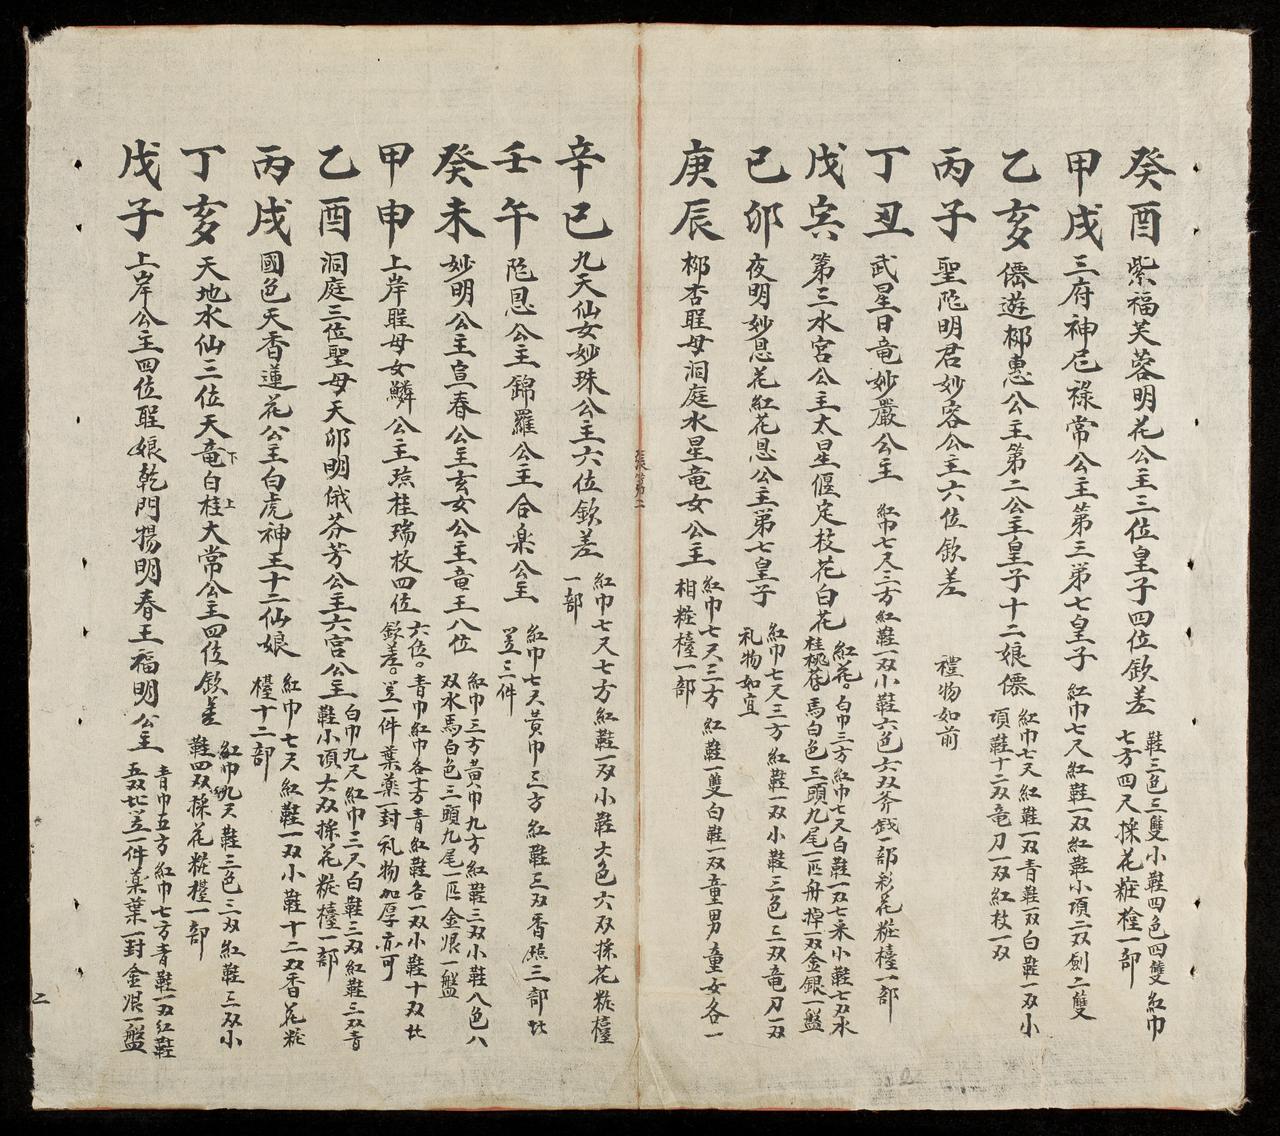 癸酉 紫福芙蓉明花公主三位皇子四位欽差 鞋三色三雙小鞋四色四雙紅巾
七方四尺採花粧橙一部
甲戌 三府神尼祿常公主第三第七皇子 紅巾七尺紅鞋一双紅鞋小項二双劍二雙
乙亥 僊遊梛惠公主第二公主皇子十二娘僊 紅巾七天紅鞋一双青鞋一双白鞋一双小
項鞋十二双竜刀一双紅杖一双
丙子 聖陀明君妙容公主六位欽差 禮物如前
丁丑 武星日竜妙嚴公主 紅巾七尺三方紅鞋一双小鞋六色六双斧鉞一部彩花粧橙一部
戊寅 第三水宮公主太星偃定枝花白花 紅花白巾三方紅巾七尺白鞋一双七来小鞋七双水
桂桃花馬白色三頭九尾一匹舟掉一双金銀一盤
己卯 夜明妙恩花紅花恩公主第七皇子 紅巾七尺三方紅鞋一双小鞋三色三双竜刀一双
礼物如宜
庚辰 梛杏聖母洞庭水星竜女公主 紅巾七天三方紅鞋一雙白鞋一双童男童女各一
相粧橙一部
張第二
辛巳 九天仙女妙珠公主六位欽差 紅巾七天七方紅鞋一双小鞋大色六双採花粧橙
一部
壬午 陀恩公主錦羅公主合楽公主 紅巾七天黄巾三方紅鞋三双香三部
笠三件
癸未 妙明公主宣春公主玄女公主竜王八位 紅巾三方黄巾九方紅鞋三双小鞋八色八
双水馬白色三頭九尾一匹金銀一盤
甲申 上岸聖母女鱗公主桂瑞枚四位 六位青巾紅巾各十方青紅鞋各一双小鞋十双
欽差笠一件葉薬一封礼物加厚亦可
乙酉 洞庭三位聖母天卯明俄芬芳公主六宮公主 白巾九尺紅巾三尺白鞋三双紅鞋三双青
鞋小項大双採花粧橙一部
丙戌 國色天香蓮花公主白虎神王十二仙娘 紅巾七天紅鞋一双小鞋十二双香花粧
橙十二部
丁亥 天地水仙三位天竜下白桂上大常公主四位欽差 紅巾九天鞋三色三双紅鞋三双小
鞋四双採花粧橙一部
戊子 上岸公主四位聖娘乾門揚明春王福明公主 青巾五方紅巾七方青鞋一双紅鞋
五双笠一件薬葉一封金銀一盤
二